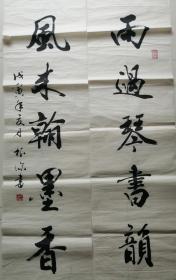 雨過琴書韻
風来翰墨香
戊寅年夏月 書